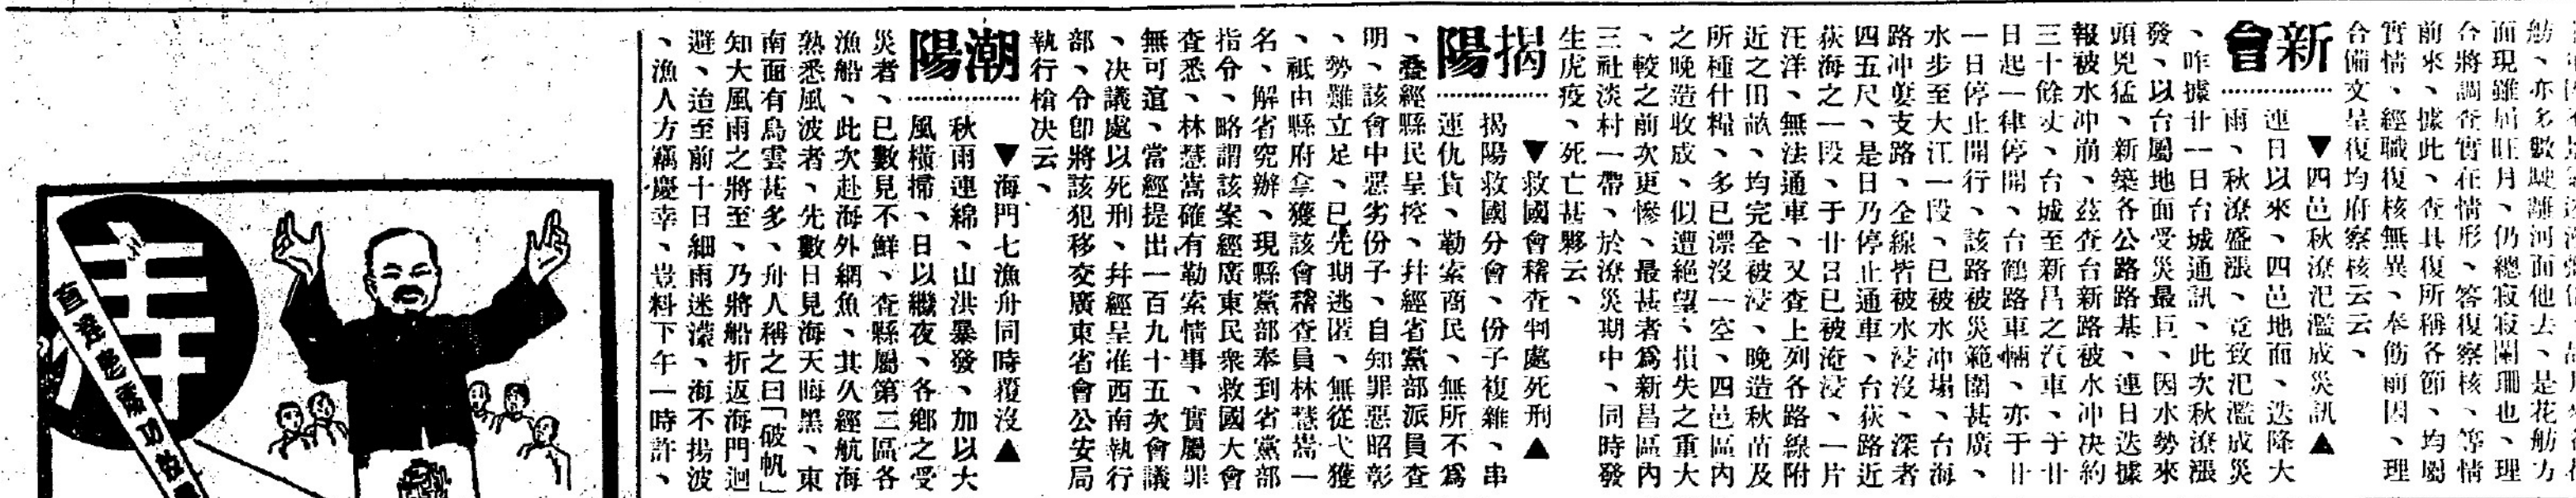 舫、亦多數駛離河面他去、是花舫方
面現雖屆旺月、仍總寂寂闌珊也、理
合將調查實在情形、答復察核、等情
前來、據此、查具復所稱各節、均屬
實情、經職復核無異、奉飭前因、理
合備文呈復均府察核云云、
新會
▼四邑秋潦汜濫成災訊▲
連日以來、四邑地面、迭降大
雨、秋潦盛漲、竟致汜濫成災
、昨據廿一日台城通訊、此次秋潦漲
發、以台屬地面受災最巨、因水勢來
頭兇猛、新築各公路路基、連日迭據
報被水冲崩、茲查台新路被水冲决約
三十餘丈、台城至新昌之汽車、于廿
日起一律停開、台鶴路車輛、亦于廿
一日停止開行、該路被災範圍甚廣、
水步至大江一段、已被水冲塲、台海
路冲蔞支路、全線皆被水浸沒、深者
四五尺、是日乃停止通車、台荻路近
荻海之一段、于廿日已被淹浸、一片
汪洋、無法通車、又查上列各路線附
近之田畝、均完全被浸、晚造秋苗及
所種什糧、多已漂沒一空、四邑區內
之晚造收成、似遭絕望、損失之重大
、較之前次更慘、最甚者爲新昌區內
三社淡村一帶、於潦災期中、同時發
生虎疫、死亡甚夥云、
揭陽
▼救國會稽查判處死刑▲
揭陽救國分會、份子複雜、串
運仇貨、勒索商民、無所不爲
、叠經縣民呈控、幷經省黨部派員查
明、該會中惡劣份子、自知罪惡昭彰
、勢難立足、已先期逃匿、無從弋獲
、祇由縣府拿獲該會稽查員林慧嵩一
名、解省究辦、現縣黨部奉到省黨部
指令、略謂該案經廣東民衆救國大會
查悉、林慧嵩確有勒索情事、實屬罪
無可逭、當經提出一百九十五次會議
、决議處以死刑、幷經呈准西南執行
部、令卽將該犯移交廣東省會公安局
執行槍决云、
潮陽
▼海門七漁舟同時覆沒▲
秋雨連綿、山洪暴發、加以大
風橫掃、日以繼夜、各鄉之受
災者、已數見不鮮、查縣屬第二區各
漁船、此次赴海外網魚、其久經航海
熟悉風波者、先數日見海天晦黑、東
南面有烏雲甚多、舟人稱之曰「破帆」
知大風雨之將至、乃將船折返海門迴
避、迨至前十日細雨迷濛、海不揚波
、漁人方竊慶幸、豈料下午一時許、